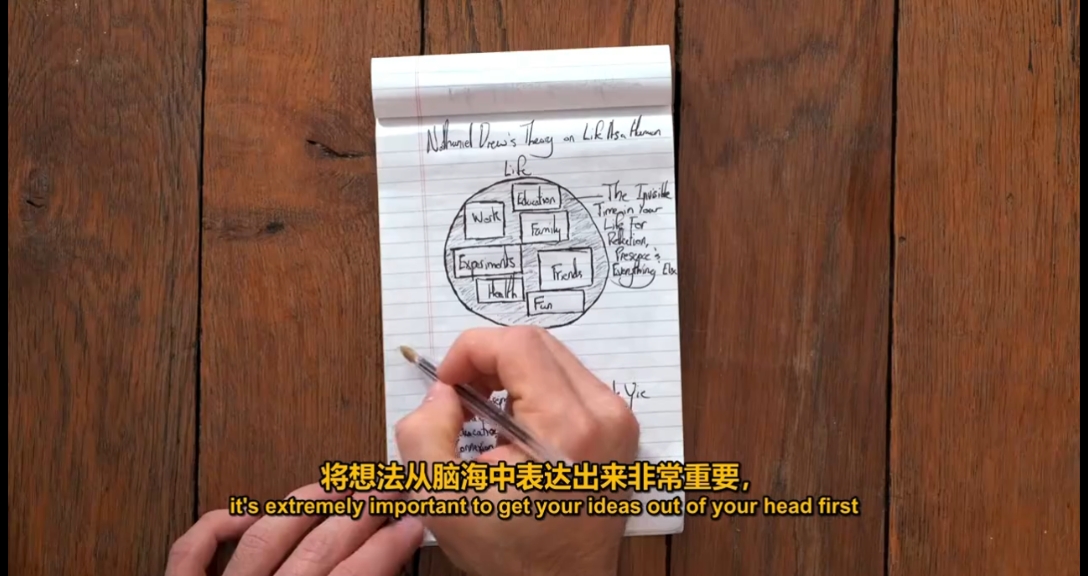 Nathaniel Drew's Theory on Life As a Human
Life
Education
Work
Family
Experiments
Friends
Health
Fun
The Invisible
Time in Your
Life For
Reflection,
Presence &
Everything Else
将想法从脑海中表达出来非常重要，
it's extremely important to get your ideas out of your head first